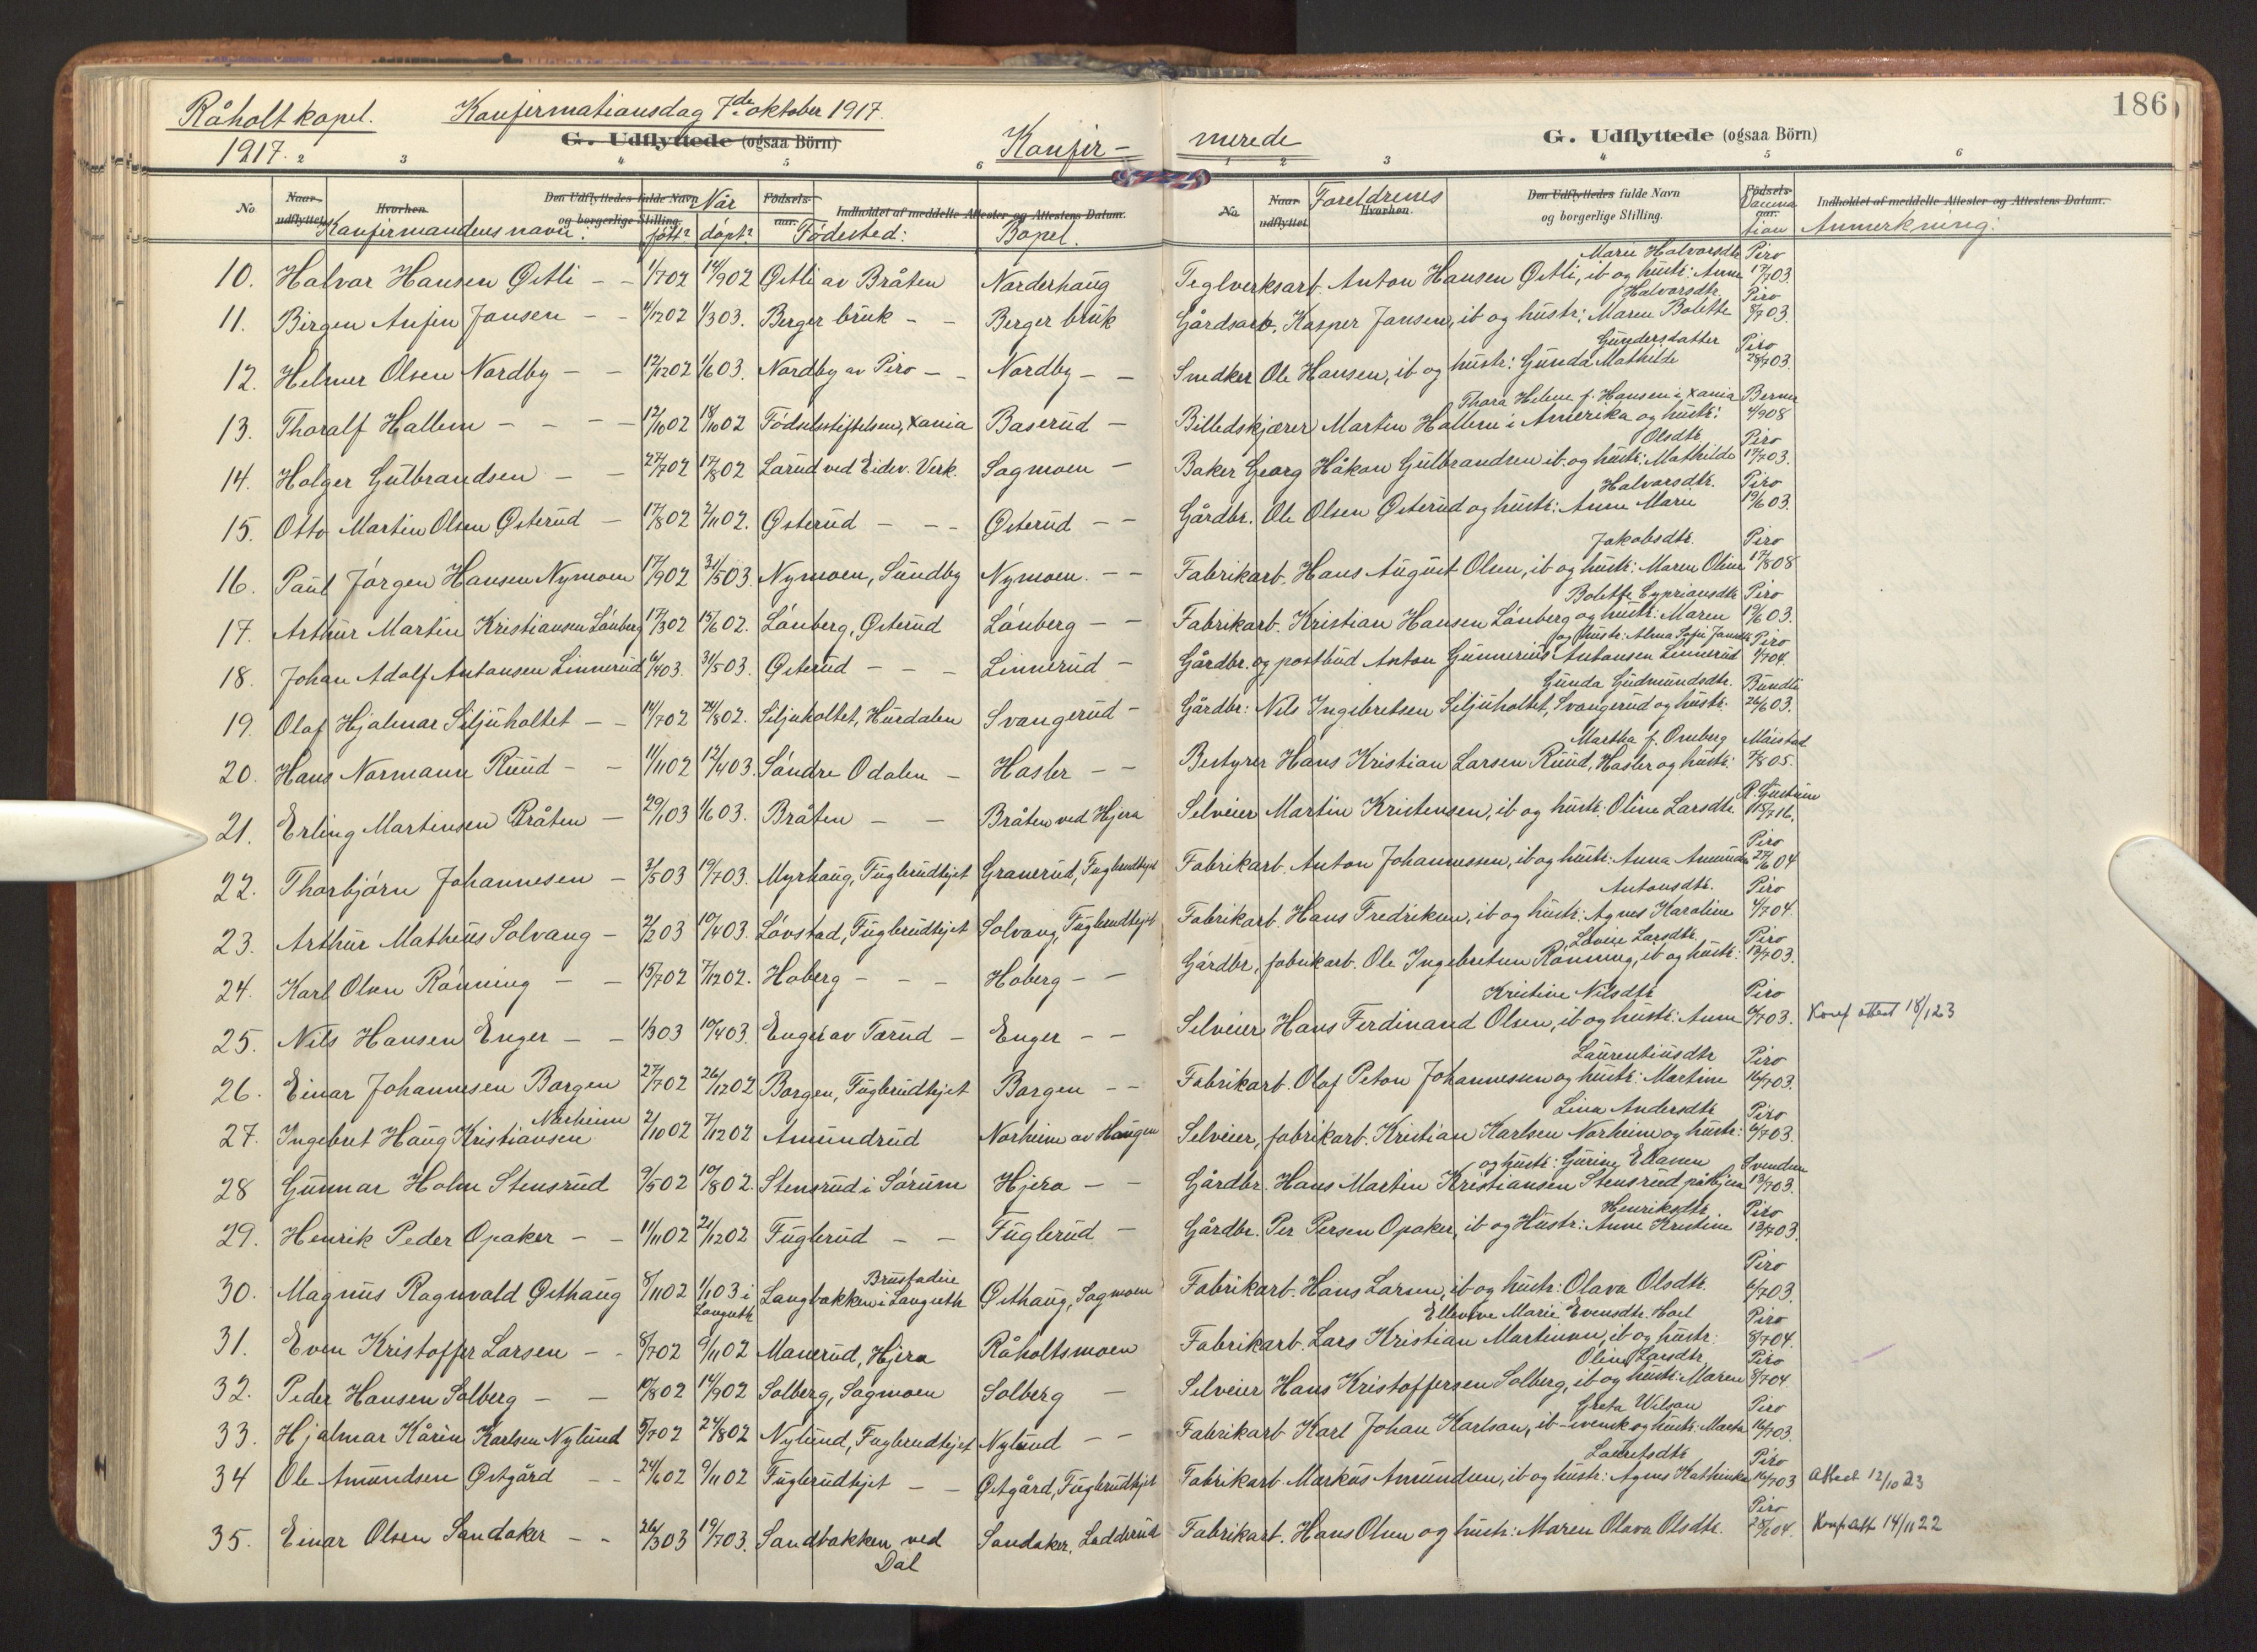 Råholt kapel. Konfirmationsdag 7de oktober 1917.
1917.
G. Udflyttede (ogsaa Börn)
Konfir-
merede
G. Udflyttede (ogsaa Börn)
186
2 3 4 5 6 1 2 3 4 5 6
No. Naar udflyttet Hvorhen. Den Udflyttedes fulde Navn og borgerlige Stilling. Födsels-aar. Indholdet af meddelte Attester og Attestens Datum.
Konfirmandens navn: Når født? døpt? Fødested: Bopel.
No. Naar udflyttet Hvorhen. Den Udflyttedes fulde Navn og borgerlige Stilling. Födsels-aar. Indholdet af meddelte Attester og Attestens Datum.
Foreldrenes Vaccination Anmerkning:
10. Halvor Hansen Østli - - 1/7 02 14/9 02 Østli av Bråten Norderhaug Teglverksarb. Anton Hansen Østli, ib og hustr: Anne Marie Halvorsdtr Piro 17/7 03.
11. Birger Anfin Jansen - - 4/12 02 1/3 03. Berger bruk - - Berger bruk Gårdsarb. Kasper Jansen, ib og hustr: Maren Bolette Halvorsdtr. Piro 8/7 03.
12. Helmer Olsen Nordby - - 12/12 02 1/6 03. Nordby av Piro - - Nordby - - Snedker Ole Hansen, ib og hustr: Gunda Mathilde Gundersdatter Piro 28/7 03.
13. Thoralf Hallem - - - - 12/10 02 18/10 02 Fødselsstiftelsen, Xania Baserud - Billedskjærer Martin Hallem i Amerika og hustr: Thora Helene f. Hansen i Xania Berner 4/9 08
14. Holger Gulbrandsen - - 27/7 02 17/8 02 Larud ved Eidsv. Verk. Sagmoen - Baker Georg Håkon Gulbrandsen ib. og hustr: Mathilde Olsdtr. Piro 17/7 03.
15. Otto Martin Olsen Østerud - 17/8 02 2/11 02. Østerud - - - Østerud - - Gårdbr. Ole Olsen Østerud og hustr: Anne Marie Halvorsdtr. Piro 19/6 03.
16. Paul Jørgen Hansen Nymoen 17/9 02 31/5 03. Nymoen, Sundby Nymoen. - - Fabrikarb. Hans August Olsen, ib og hustr: Maren Oline Jakobsdtr. Piro 17/8 08
17. Arthur Martin Kristiansen Lønberg 17/3 02 15/6 02. Lønberg, Østerud Lønberg - - Fabrikarb. Kristian Hansen Lønberg og hustr: Maren Bolette Cypriansdtr Piro 19/6 03.
18. Johan Adolf Antonsen Linnerud 6/4 03. 31/5 03. Østerud - - - Linnerud - Gårdbr. og postbud Anton Gunnerius Antonsen Linnerud og hustr: Alma Sofie Jansdtr Piro 1/7 04.
19. Olaf Hjalmar Siljuholtet - - 14/7 02 24/8 02. Siljuholtet, Hurdalen Svangerud - Gårdbr: Nils Ingebretsen Siljuholtet, Svangerud og hustr. Gunda Gudmundsdtr. Bundli 26/6 03.
20. Hans Normann Ruud - - 11/11 02 12/4 03. Søndre Odalen - Hasler - - Bestyrer Hans Kristian Larsen Ruud, Hasler og hustr: Martha f. Omberg 7/8 05.
21. Erling Martinsen Bråten - 29/1 03 1/6 03. Bråten - - Bråten ved Hjera Selveier Martin Kristensen, ib og hustr. Oline Larsdtr. 15/7 16.
22. Thorbjørn Johannesen - 3/5 03 19/7 03. Myrhaug, Fuglerudhejet Granerud, Fuglerudhejet Fabrikarb. Anton Johannessen, ib og hustr: Anna Amunds Piro 24/6 04
23. Arthur Matheus Solvang - 2/2 03 10/4 03. Løvstad, Fuglerudhejet Solvang, Fuglerudhejet Fabrikarb. Hans Fredriksen, ib og hustr: Agnes Karoline Antonsdtr. Piro 4/7 04.
24. Karl Olsen Rønning - - 15/7 02 7/12 02. Hoberg - - - Hoberg - - Gårdbr, fabrikarb. Ole Ingebretsen Rønning, ib og hustr: Lovise Larsdtr. Piro 13/7 03.
25. Nils Hansen Enger - - 1/3 03 10/4 03. Enger av Tærud - Enger - - Selveier Hans Ferdinand Olsen, ib og hustr: Anne Kristine Nilsdtr Piro 6/7 03. Konf. attest 18/1 23
26. Einar Johannesen Borgen 27/7 02 26/12 02 Borgen, Fuglerudhejet Borgen - - Fabrikarb. Olaf Peton Johannessen og hustr: Martine Laurentiusdtr Piro 16/7 03.
27. Ingebret Haug Kristiansen Norheim 2/10 02 7/12 02 Amundrud Norheim av Haugen Selveier, fabrikarb. Kristian Karlsen Norheim og hustr: Lina Andersdtr Piro 6/7 03.
28 Gunnar Holm Stensrud 9/5 02 10/8 02. Stensrud i Sørum Hjera - - Gårdbr. Hans Martin Kristiansen Stensrud på Hjera og hustr: Gurine Ellasen Svendsen 13/7 03.
29. Henrik Peder Opaker - - 11/11 02 21/12 02 Fuglerud - - Fuglerud - Gårdbr. Per Persen Opaker, ib og Hustr: Anne Kristine Henriksdtr Piro 13/7 03.
30. Magnus Ragnvald Østhaug 8/11 02 1/1 03 i Langseth Langbakken i Langseth Østhaug, Sagmoen Fabrikarb. Hans Larsen, ib og hustr: Olava Olsdtr. Piro 6/7 03.
31. Even Kristoffer Larsen - - 8/7 02 9/11 02 Manerud, Hjera Råholtsmoen Fabrikarb. Lars Kristian Martinsen, ib og hustr: Ellevine Marie Evensdtr. Hoel Piro 8/7 04.
32. Peder Hansen Solberg - - 10/8 02 14/9 02 Solberg, Sagmoen Solberg - Selveier Hans Kristoffersen Solberg, ib og hustr: Maren Oline Larsdtr. Piro 8/7 04.
33. Hjalmar Kårin Karlsen Nylund 5/7 02 24/8 02 Nylund, Fuglerudhejet Nylund - - Fabrikarb. Karl Johan Karlson, ib - svensk og hustr: Marta Greta Wilson Piro 16/7 03.
34 Ole Amundsen Østgård - - 24/6 02 9/11 02 Fuglerudhejet - - Østgård, Fuglerudhejet Fabrikarb. Markus Amundsen, ib og hustr: Agnes Kathinka Lauritsdtr Piro 16/7 03 Attest 12/10 23
35. Einar Olsen Sandaker - - 26/3 03 19/7 03. Sandbakken ved Dal Sandaker, Ladderud Fabrikarb. Hans Olsen og hustr: Maren Olava Olsdtr. Piro 28/6 04. Konf. att 14/11 22